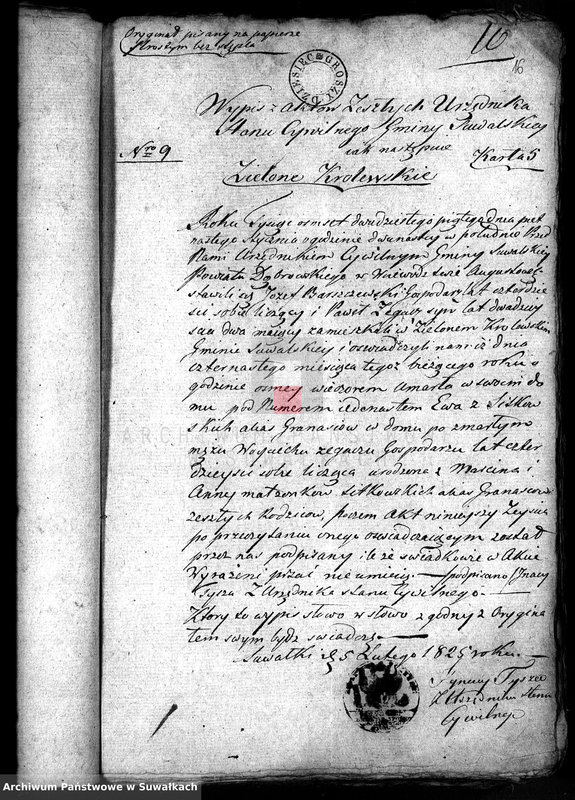 Oryginał pisany na papierze
prostym bez stępla
10
16
DZIESIĘĆ GROSZY
Wypis z aktów Zeszłych Urzędnika
Stanu Cywilnego Gminy Suwalskiey
iak następuie
Nro 9
Karta 5
Zielone Krolewskie
Roku Tysiąc osmset dwudziestego piątego dnia piet
nastego Stycznia o godzinie dwunastey w południe Przed
Nami Urzędnikiem Cywilnym Gminy Suwalskiey
Powiatu Dąbrowskiego w Woiewodztwie Augustow
stawili się Jozef Barszczewski Gospodarz lat czterdzie
ści sobie liczący i Paweł Zegacz syn lat dwadzie
ścia dwa maiący zamieszkali w Zielonem Krolewskim
Gminie Suwalskiey i oswiadczyli nam iż dnia
czternastego miesiąca tegoż bieżącego roku o
godzinie osmey wieczorem umarła w swoim do
mu pod Numerem iedenastem Ewa z Sitkow
skich alias Granasiow w domu po zmarłym
mężu Woyciechu Zegaczu Gospodarzu lat czter
dzieyści sobie licząca urodzona z Marcina i
Anny małżonkow Sitkowskich alias Granasiow
zeszłych Rodzicow, poczem Akt ninieyszy Zeyścia
po przeczytaniu onego oswiadczaiącym został
przez nas podpisany ile że swiadkowie w Akcie
Wyrażeni pisać nie umieią. — podpisano Ignacy
Tysza Z Urzędnika Stanu Cywilnego.
Ktory to wypis słowo w słowo zgodny z Orygina
łem swym bydź swiadczę —
Suwałki d. 5 Lutego 1825 roku. —
Ignacy Tysza
Z Urzędnika Stanu
Cywilneg
ARCHI
Archiwum Państwowe w Suwałkach